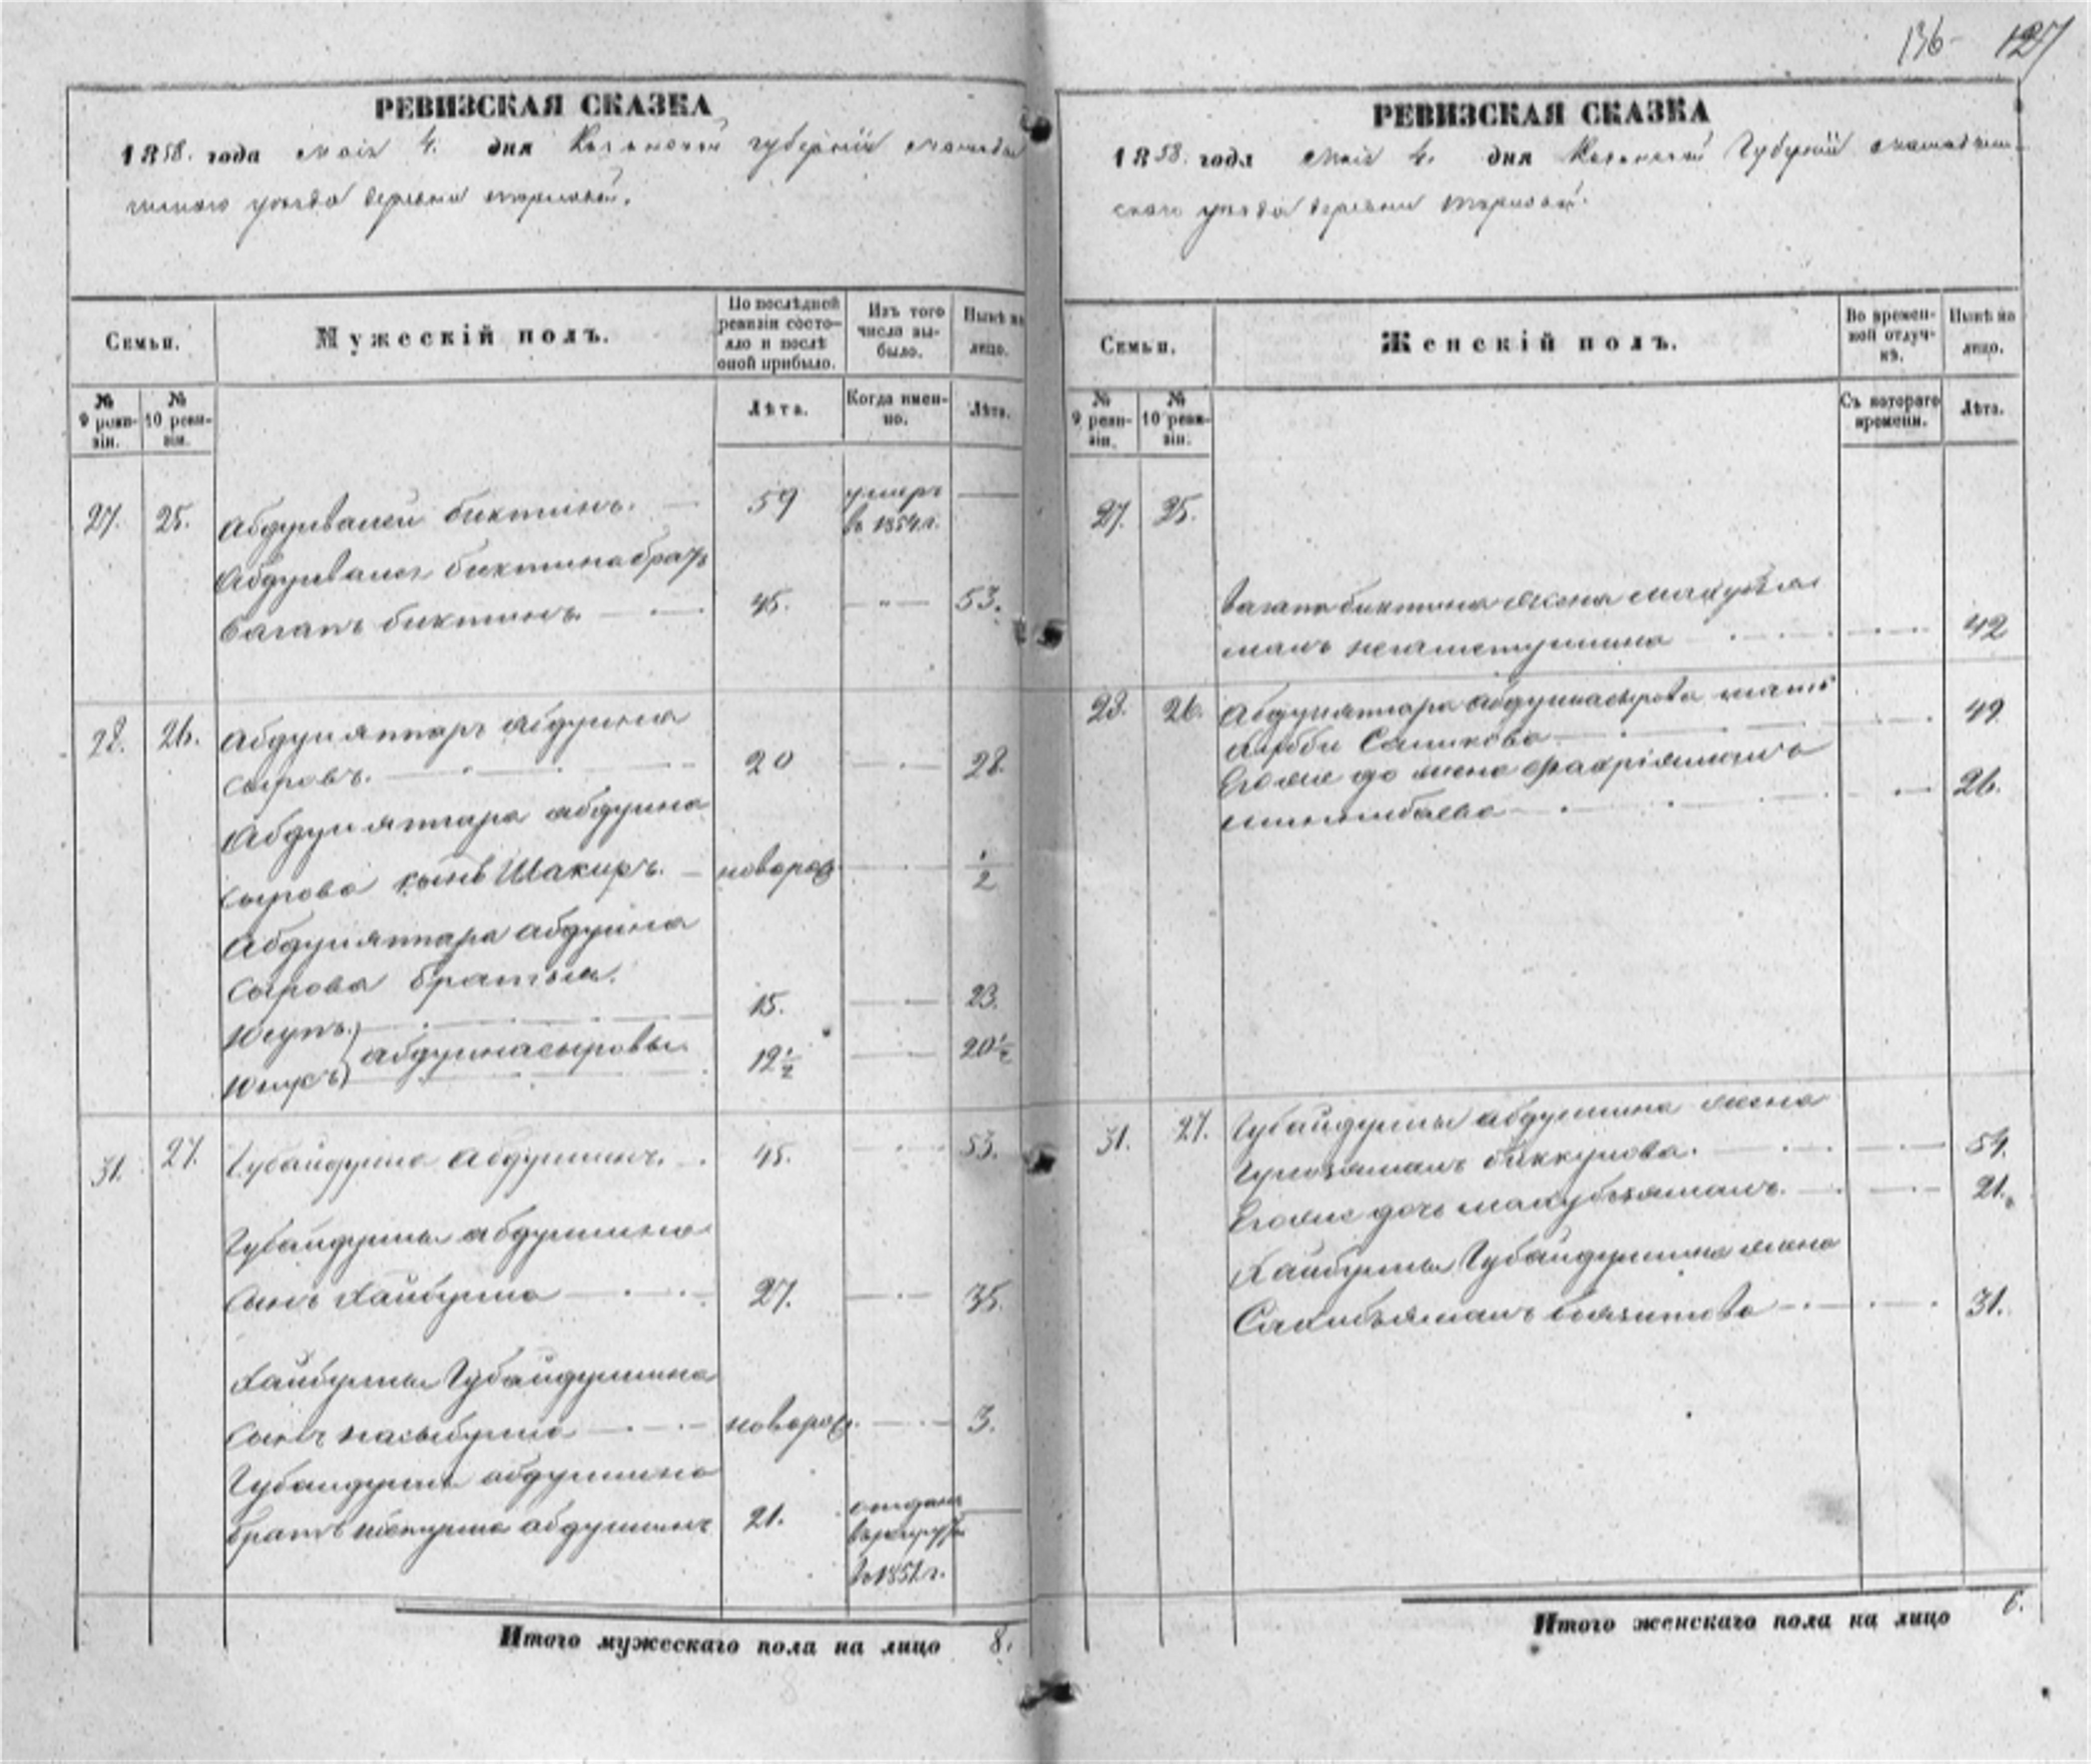 136- 127
РЕВИЗСКАЯ СКАЗКА
1858. года Мая 4. дня Казанской губерніи Мамады
шскаго уезда деревни
Семьи.
Мужескій полъ.
По послѣдней ревизіи состояло и послѣ оной прибыло.
Изъ того числа выбыло.
Нынѣ на лицо.
№ 9 ревизіи.
№ 10 ревизіи.
Лѣта.
Когда именно.
Лѣта.
27. 25. Абдулвалей биктинъ. 59 умеръ
в 1854 г.
Абдулвалея биктина братъ
Вагапъ биктинъ 45. 53.
28. 26. Абдулятаръ абдулна
сыровъ. 20 28.
Абдулятара абдулна
сырова сынъ Шакиръ. новорож. 1/2
Абдулятара абдулна
сырова братья.
Юсупъ 15. 23.
Юнусъ абдулнасыровы 12 1/2 20 1/2
31. 27. Губайдулла Абдуллинъ. 45. 53.
Губайдуллы абдуллина
сынъ Хайбулла 27. 35.
Хайбуллы Губайдуллина
сынъ насыбулла новорож. 3.
Губайдуллы абдуллина
братъ абдуллинъ 21. отданъ
в рекруты
в 1851 г.
Итого мужескаго пола на лицо 8.
РЕВИЗСКАЯ СКАЗКА
1858. года Мая 4. дня Казанской Губерніи Мамадыш
скаго уезда деревни
Семьи.
Женскій полъ.
Во временной отлучкѣ.
Нынѣ на лицо.
№ 9 ревизіи.
№ 10 ревизіи.
Съ котораго времени.
Лѣта.
27. 25.
Вагапа биктина жена Махубзя
малъ 42
28. 26. Абдулятара абдулнасырова мать
Салихова 49.
Его же до жена Фахріямалъ
26.
31. 27. Губайдуллы абдуллина жена
биккулова. 54.
Его же дочь махубзямалъ. 21.
Хайбуллы Губайдуллина жена
Сахибзямалъ баязитова 31.
Итого женскаго пола на лицо 6.